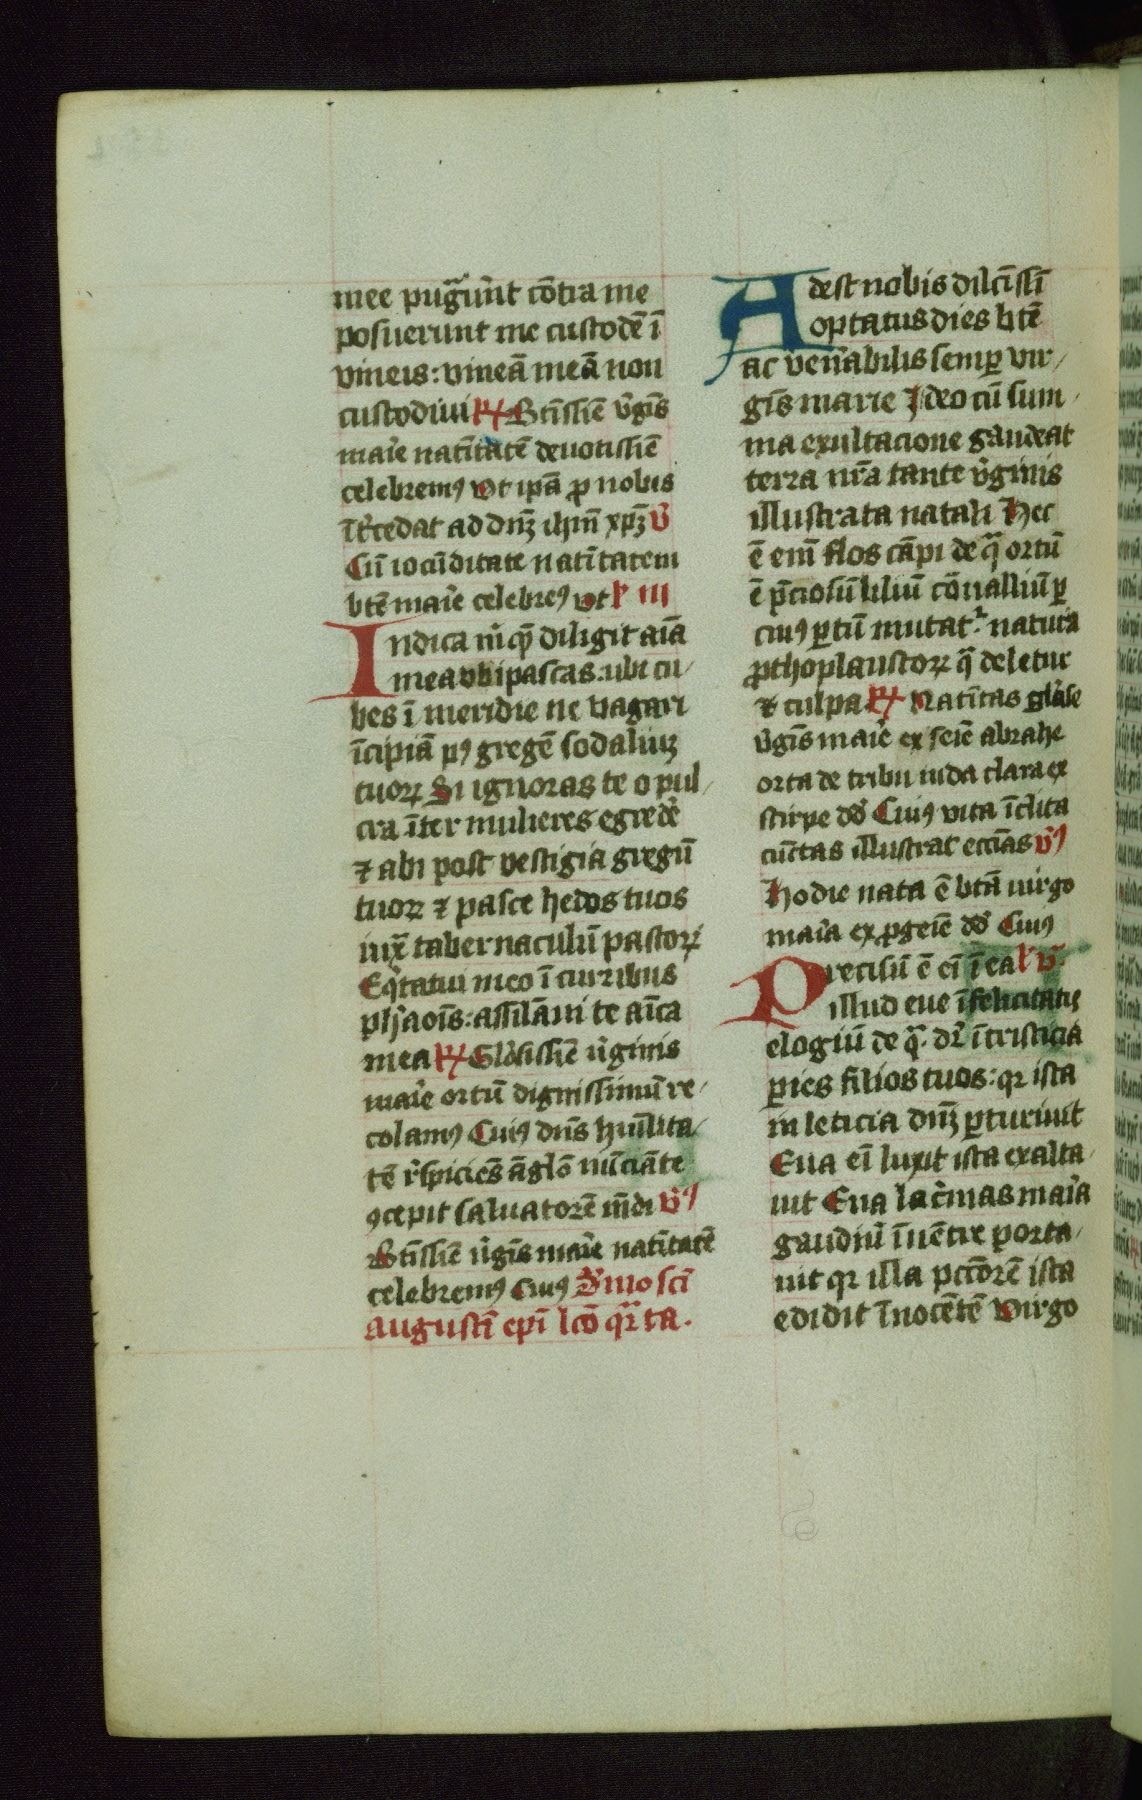 mee pugȃuͬnt cōtra me
posuerunt me custodē ī
vineis: vineā meā non
custodiui ℟ Btissīe v̓gīs
maͥe natīτatē deuotissīe
celebremꝰ Vt ip̄a ꝓ nobis
īt̓cedat ad dn̄ꝫ ihm̄ xp̄ꝫ V̓
Cū iocūditate natītatem
btē maͥe celebreꝰ vt l̓ III
Indica m̄ qꝫ diligit aīa
mea vbi pascas: ubi cu/
bes ī meridie ne vagari
īcipiā pꝰ gregē sodaliuꝫ
tuoꝝ Si ignoras te o pul/
cra īter mulieres egrede̓
⁊ abi post vestigia gregū
tuoꝝ ⁊ pasce hedos tuos
iux̄ tabernaculū pastoꝝ
Eq̓tatui meo ī curribus
ph̓aoīs: assilāui te aīca
mea ℟ Gl̓osissīe v̓ginis
maͥe ortū dignissimū re/
colamꝰ Cuiꝰ dn̄s hūilita/
tē r̓spiciēs āglō nūciāte
ꝯcepit saluatorē mūdi V̓ꝰ
Btissīe v̓gīs maͥe natītatē
celebremꝰ Cuiꝰ S̓mo sc̄i
augustī ep̄i lc̄o qͣrta.
Adest nobis dilc̄issī
optatus dies btē
ac ven̓abilis semꝑ vir/
gīs marie Ideo cū sum/
ma exultacione gaudeat
terra nr̄a tante v̓ginis
illustrata natali Hec
ē enī flos cāpi de qͣ ortū
ē p̄ciosū liliū cōualliū ꝑ
cuiꝰ ꝑtū mutat᷑ natura
ꝓthoplaustoꝝ q̄ deletur
⁊ culpa ℟ Natītas gl̓ose
v̓gīs maͥe ex seīe abrahe
orta de tribu iuda clara ex
stirpe dd̓ Cuiꝰ vita īclita
cūctas illustrat ecc̄ias V̓ꝰ
Hodie nata ē btā uirgo
maͥa ex ꝓgeīe dd̓ Cuiꝰ
Precisū ē eī ī ea l̓ V̓
illud eue īfelicitatis
elogiū de qͣ dr̄ ītristicia
ꝑies filios tuos: qꝛ ista
in leticia dn̄ꝫ ꝑturiuit
Eua eī luxit ista exalta/
uit Eua lac̓mas maͥa
gaudiū īuētre porta/
uit qꝛ illa pctōrē ista
edidit īnocētē Virgo